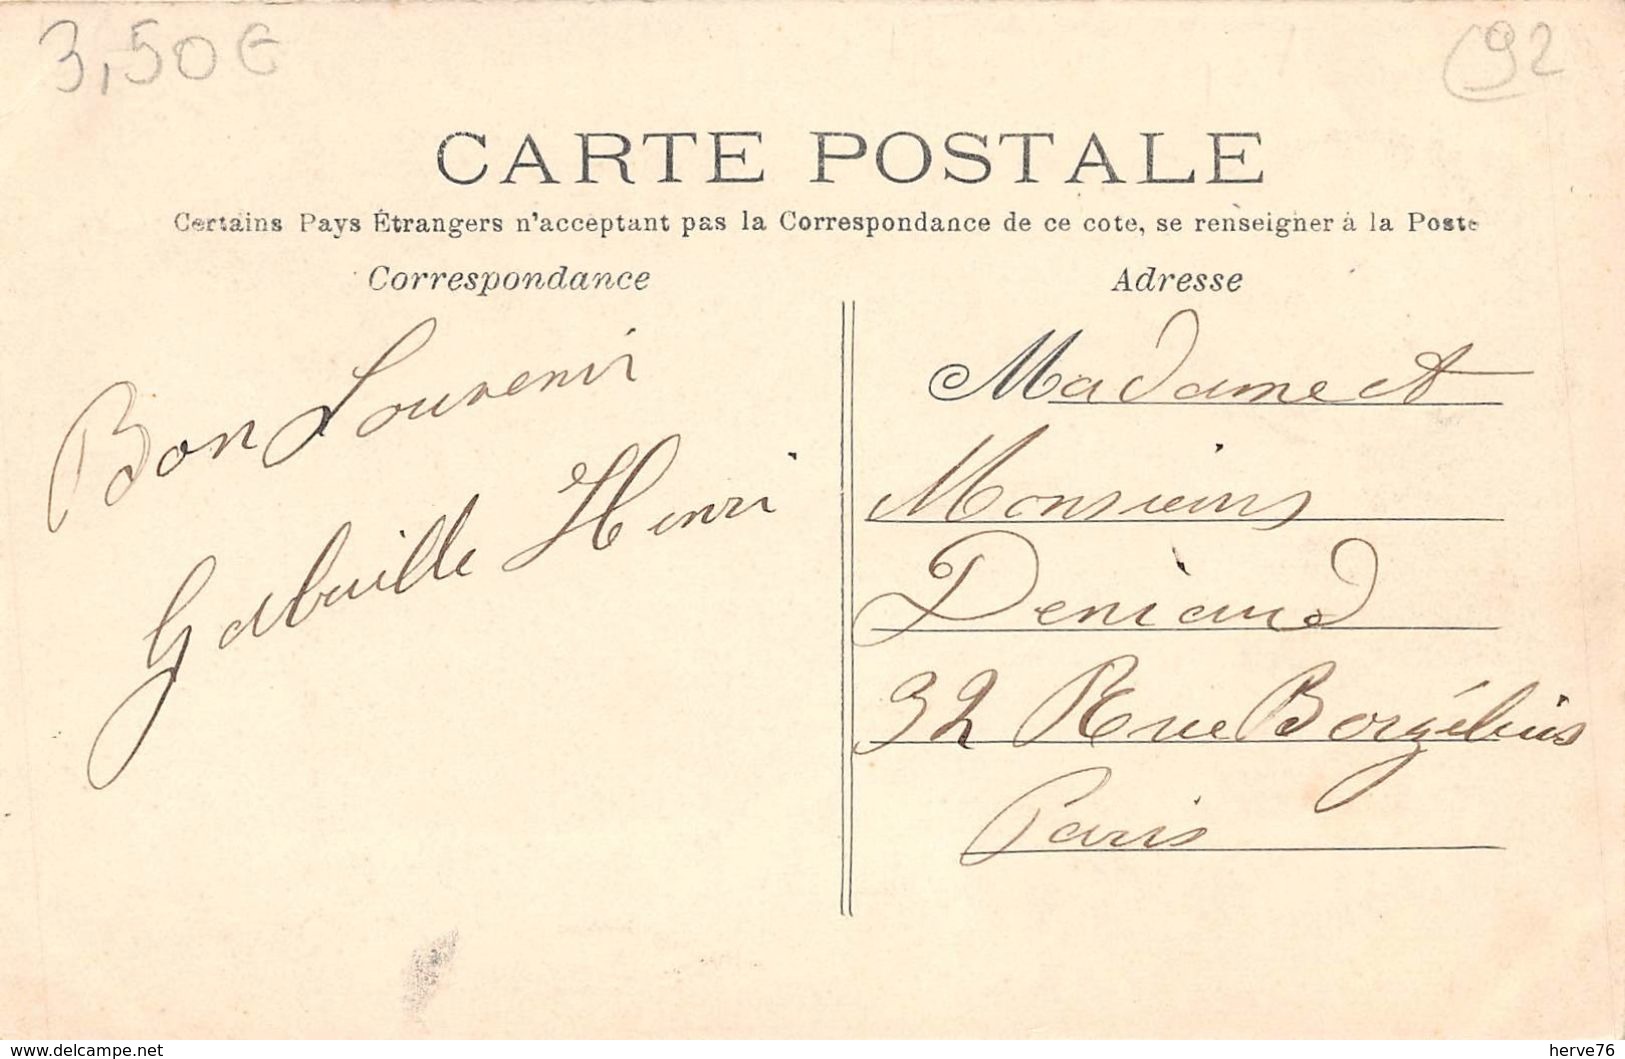 3,50€
92
CARTE POSTALE
Certains Pays Étrangers n'acceptant pas la Correspondance de ce cote, se renseigner à la Poste
Correspondance
Adresse
Bon Souvenir
Henri
Madame et
Monsieurs
Deniaud
32 Rue Borzélius
Paris
www.delcampe.net
herve76